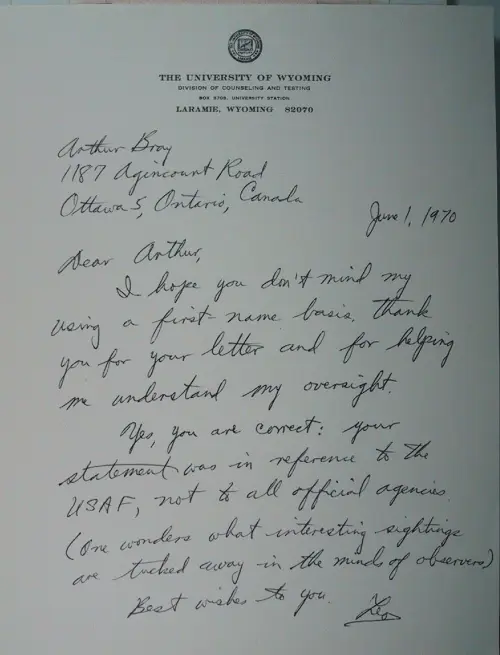 THE UNIVERSITY OF WYOMING
DIVISION OF COUNSELING AND TESTING
BOX 3708, UNIVERSITY STATION
LARAMIE, WYOMING 82070
Arthur Bray
1187 Agincourt Road
Ottawa 5, Ontario, Canada
June 1, 1970
Dear Arthur,
I hope you don't mind my
using a first-name basis. Thank
you for your letter and for helping
me understand my oversight.
Yes, you are correct: your
statement was in reference to the
USAF, not to all official agencies.
(One wonders what interesting sightings
are tucked away in the minds of observers)
Best wishes to you.
Leo